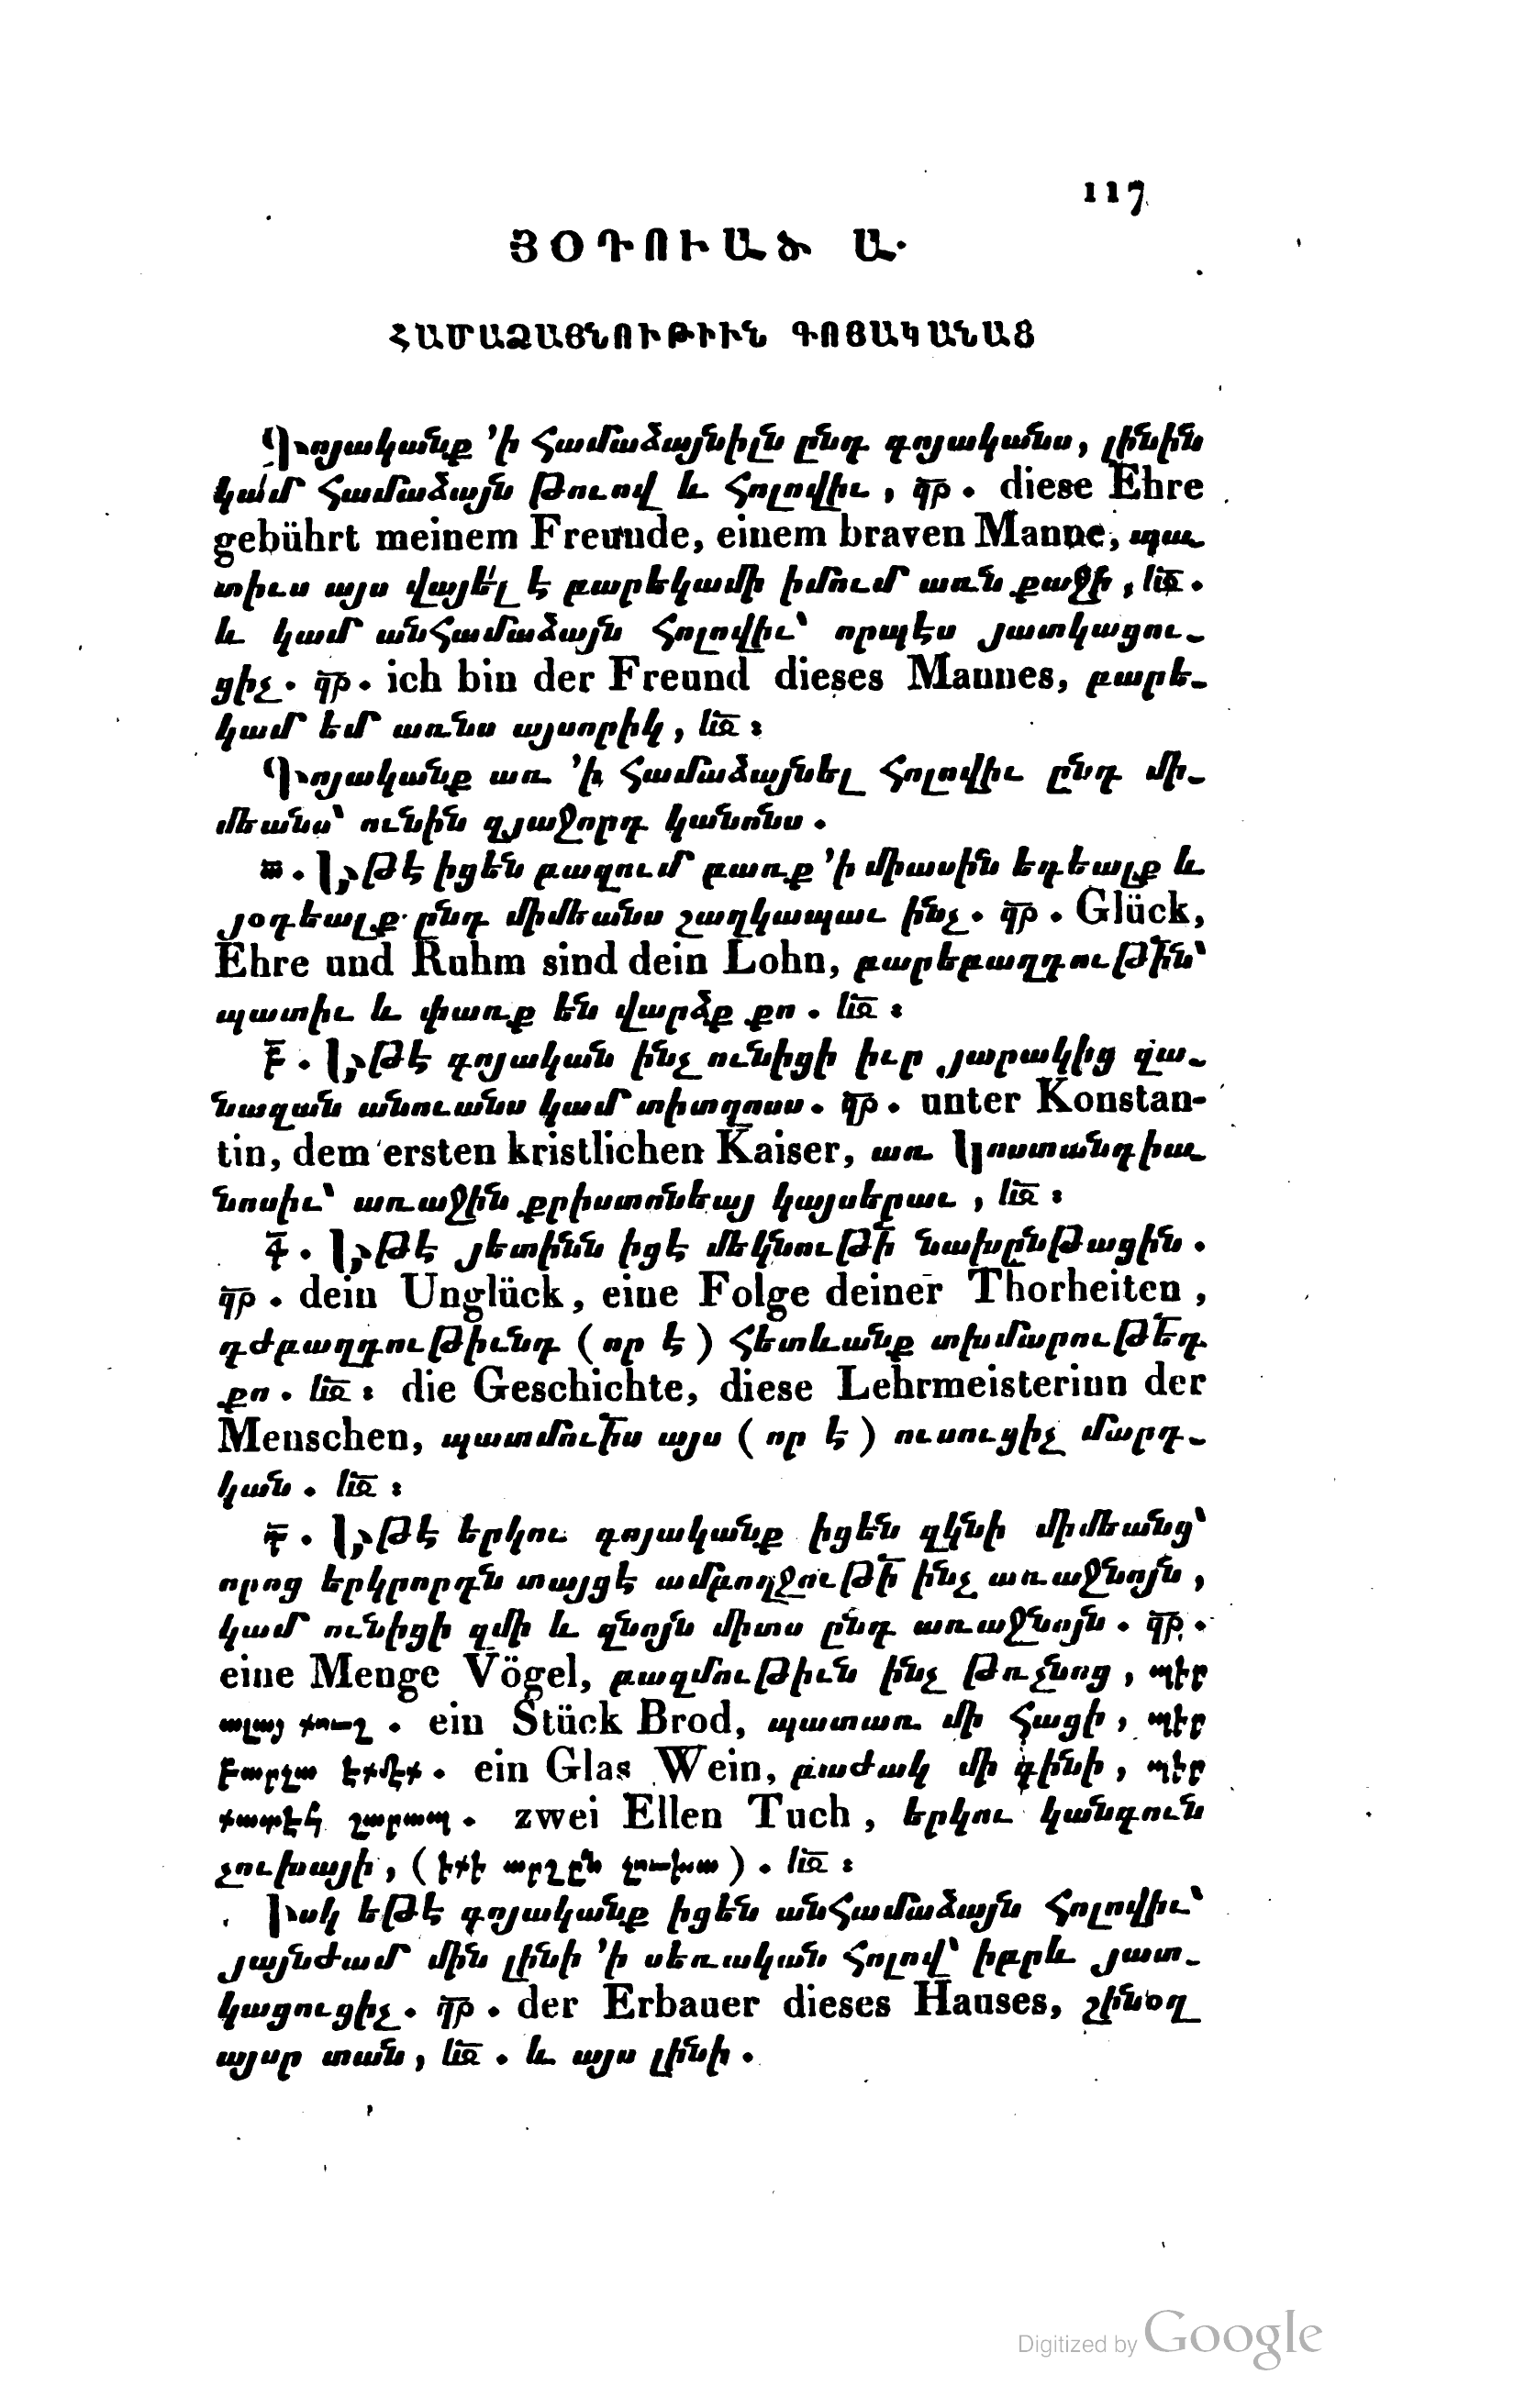 117
ՅՕԴՈՒԱԾ Ա.
ՀԱՄԱՁԱՅՆՈՒԹԻՒՆ ԳՈՅԱԿԱՆԱՑ
Գոյականք ՚ի համաձայնիլն ընդ գոյականս, լինին
կամ համաձայն թուով և հոլովիւ, զ̅ր̅. diese Ehre
gebührt meinem Freunde, einem braven Manne, պա֊
տիւս այս վայել է բարեկամի իմում առն քաջի, և̅լ̅.
և կամ անհամաձայն հոլովիւ՝ որպէս յատկացու֊
ցիչ. զ̅ր̅. ich bin der Freund dieses Mannes, բարե֊
կամ եմ առնս այսորիկ, և̅լ̅։
Գոյականք առ ՚ի համաձայնել հոլովիւ ընդ մի֊
մեանս՝ ունին զյաջորդ կանոնս.
ա̅. Եթէ իցեն բազում բառք ՚ի միասին եդեալք և
յօդեալք ընդ միմեանս շաղկապաւ ինչ. զ̅ր̅. Glück,
Ehre und Ruhm sind dein Lohn, բարեբաղդութի̅ն՝
պատիւ և փառք են վարձք քո. և̅լ̅։
բ̅. Եթէ գոյական ինչ ունիցի իւր յարակից զա֊
նազան անուանս կամ տիտղոսս. զ̅ր̅. unter Konstan-
tin, dem ersten kristlichen Kaiser, առ Կոստանդիա֊
նոսիւ՝ առաջին քրիստոնեայ կայսերաւ, և̅լ̅։
գ̅. Եթէ յետինն իցէ մեկնութի̅ նախընթացին.
զ̅ր̅. dein Unglück, eine Folge deiner Thorheiten,
դժբաղդութիւնդ (որ է) հետևանք տխմարութե̅դ
քո. և̅լ̅։ die Geschichte, diese Lehrmeisterinn der
Menschen, պատմուի̅ս այս (որ է) ուսուցիչ մարդ֊
կան. և̅լ̅։
դ̅. Եթէ երկու գոյականք իցեն զկնի միմեանց՝
որոց երկրորդն տայցէ ամբողջութի̅ ինչ առաջնոյն,
կամ ունիցի զմի և զնոյն միտս ընդ առաջնոյն. զ̅ր̅.
eine Menge Vögel, բազմութիւն ինչ թռչնոց, պիր
ալայ քուշ. ein Stück Brod, պատառ մի հացի, պիր
բարչա էքմէք. ein Glas Wein, բաժակ մի գինի, պիր
քատէհ շարապ. zwei Ellen Tuch, երկու կանգուն
չուխայի, (իքի արշըն չուխա). և̅լ̅։
Իսկ եթէ գոյականք իցեն անհամաձայն հոլովիւ՝
յայնժամ մին լինի ՚ի սեռական հոլով՝ իբրև յատ֊
կացուցիչ. զ̅ր̅. der Erbauer dieses Hauses, շինօղ
այսր տան, և̅լ̅. և այս լինի.
Digitized by Google